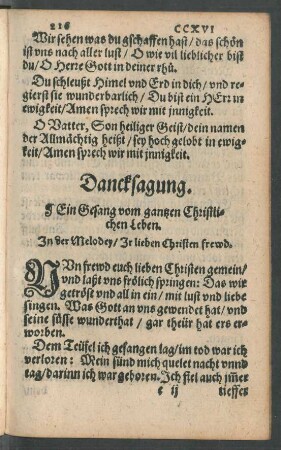 216 CCXVI
Wir sehen was du gschaffen hast / das schön
ist vns nach aller lust / O wie vil lieblicher bist
du / O Herre Gott in deiner rhů.
Du schleußt Himel vnd Erd in dich / vnd re
gierst sie wunderbarlich / Du bist ein HErr in
ewigkeit / Amen sprech wir mit jnnigkeit.
O Vatter, Son heiliger Geist / dein namen
der Allmächtig heißt / sey hoch gelobt in ewig-
keit / Amen sprech wir mit jnnigkeit.
Dancksagung.
¶ Ein Gesang vom gantzen Christli-
chen Leben.
In der Melodey / Ir lieben Christen frewd.
NVn frewd euch lieben Christen gemein /
vnd laßt vns frölich springen: Das wir
getröst vnd all in ein / mit lust vnd liebe
singen. Was Gott an vns gewendet hat / vnd
seine süsse wunderthat / gar theür hat ers er-
worben.
Dem Teüfel ich gefangen lag / im tod war ich
verloren: Mein sünd mich quelet nacht vnnd
tag / darinn ich war geboren. Ich fiel auch jm̃er
e ij tieffer